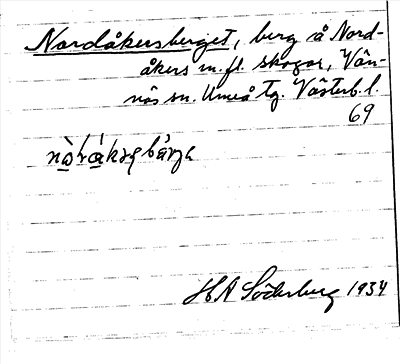 Nordåkersberget, berg å Nord-
åkers m.fl. skogar, Vän-
näs sn. Umeå tg. Västerb. l.
69
H A Söderberg 1934